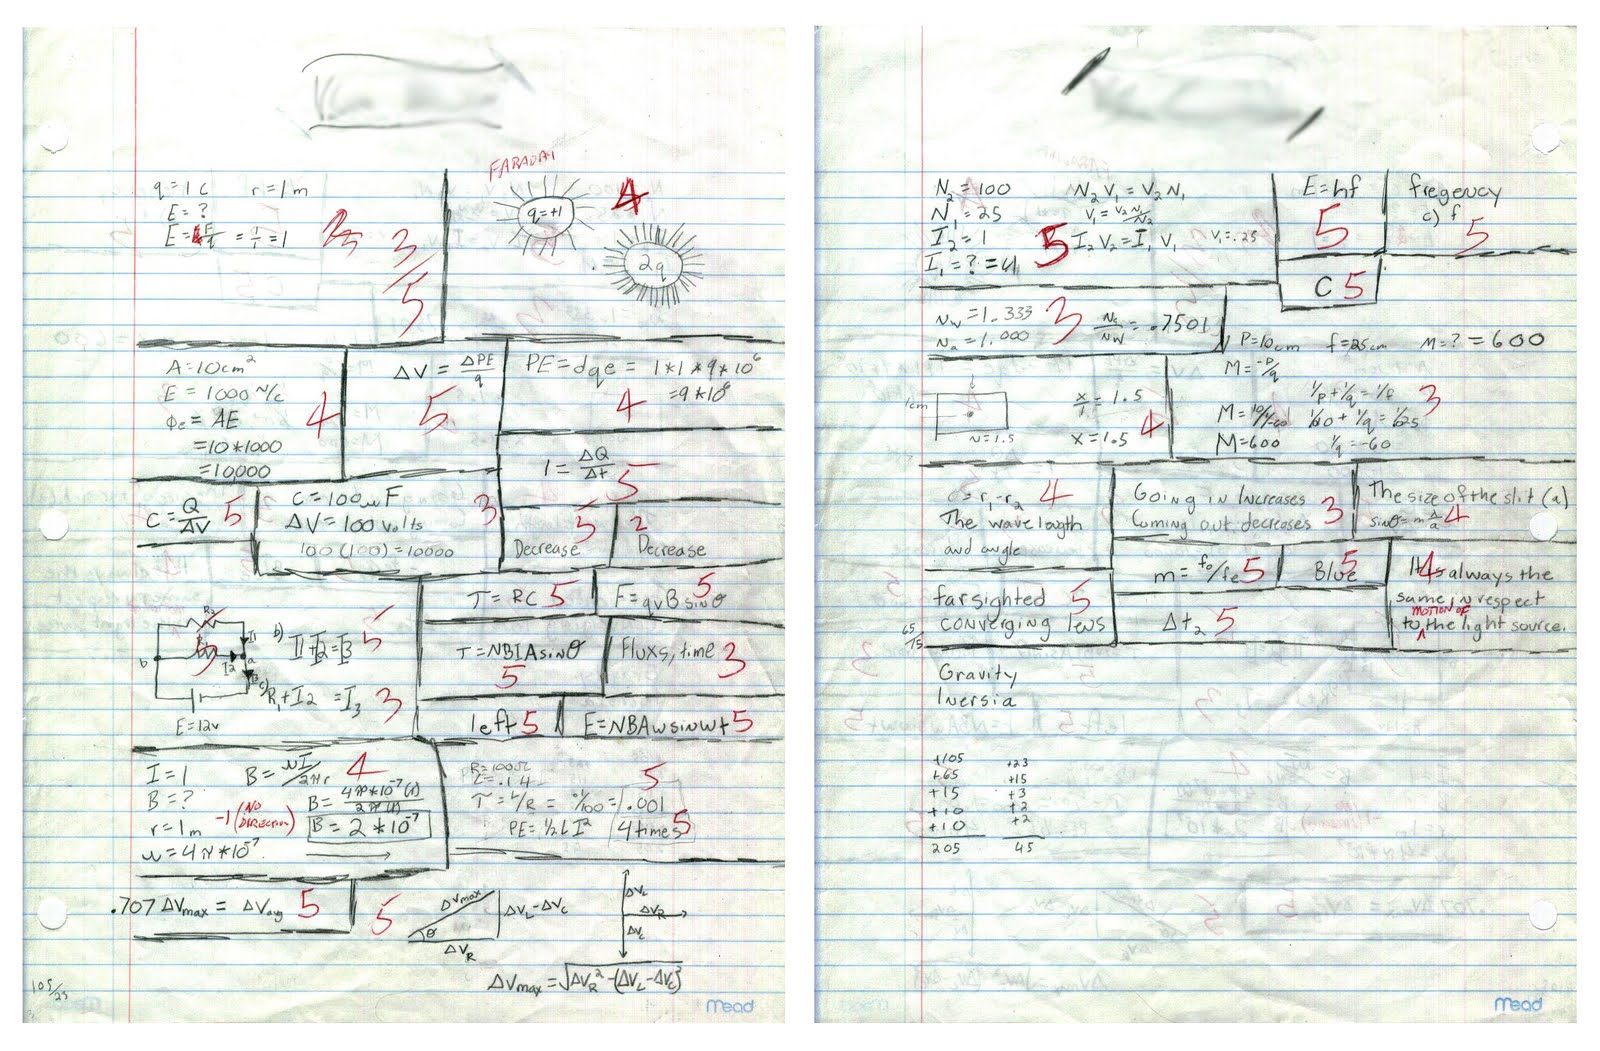 q = 1 C r = 1 m
E = ?
E = F/q = 1/1 = 1
3/5
FARADAY
q=+1
4
2q
A = 10 cm²
E = 1000 N/C
Φe = AE
= 10*1000
= 10,000
4
ΔV = ΔPE/q
5
PE = dqe = 1*1*9*10⁶
= 9*10⁶
4
I = ΔQ/Δt
5
C = Q/ΔV
5
C = 100 μF
ΔV = 100 volts
100(100) = 10000
3
5
Decrease
2
Decrease
T = RC 5
F = qvB sinθ
5
R₂
I₁
I₂
a
b
E = 12v
b) I1+I2=I3
5
c) R₁+I2 = I₃
3
T = NBIA sinθ
5
Fluxs, time
3
left 5
E = NBAw sinwt 5
I = 1 B = μI/2πr 4
B = ?
r = 1 m
μ = 4π*10⁻⁷
-1 (NO DIRECTION)
B = 4π*10⁻⁷(1)/2π(1)
B = 2*10⁻⁷
R = 100Ω
L = .1 H
T = L/R = 0.1/100 = .001
5
PE = 1/2 L I² 4 times
5
.707 ΔVmax = ΔVavg 5
5
ΔVmax
ΔVL-ΔVC
θ
ΔVR
ΔVL
ΔVR
ΔVC
ΔVmax = √ΔVR²-(ΔVL-ΔVC)²
105/23
mead
N₂ = 100
N₁ = 25
I₂ = 1
I₁ = ? = 4
5
N₂V₁ = V₂N₁
V₁ = V₂N₁/N₂
I₂V₂ = I₁V₁ V₁ = .25
E = hf
5
fregency
c) f
5
C 5
Nw = 1.333
Na = 1.000
3
Na/Nw = .7501
P = 10cm f = 25cm M = ? = 600
M = -P/q
1/p + 1/q = 1/f
M = 10/1/-60 1/10 + 1/q = 1/25
M = 600 1/q = -60
3
1cm
N = 1.5
x/1 = 1.5
x = 1.5
4
r₁-r₂ 4
The wave length
and angle
Going in Increases
Coming out decreases 3
The size of the slit (a)
sinθ = m λ/a 4
farsighted 5
converging lens
m = fo/fe 5
Blue
5
Δt₂ 5
4
It is always the
same in respect
MOTION OF
to the light source.
65/15
Gravity
Inersia
+105
+65
+15
+10
+10
205
+23
+15
+3
+2
+2
45
mead